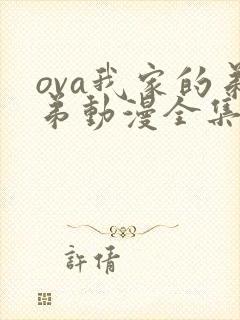 ova我家的弟
弟動漫全集
許倩